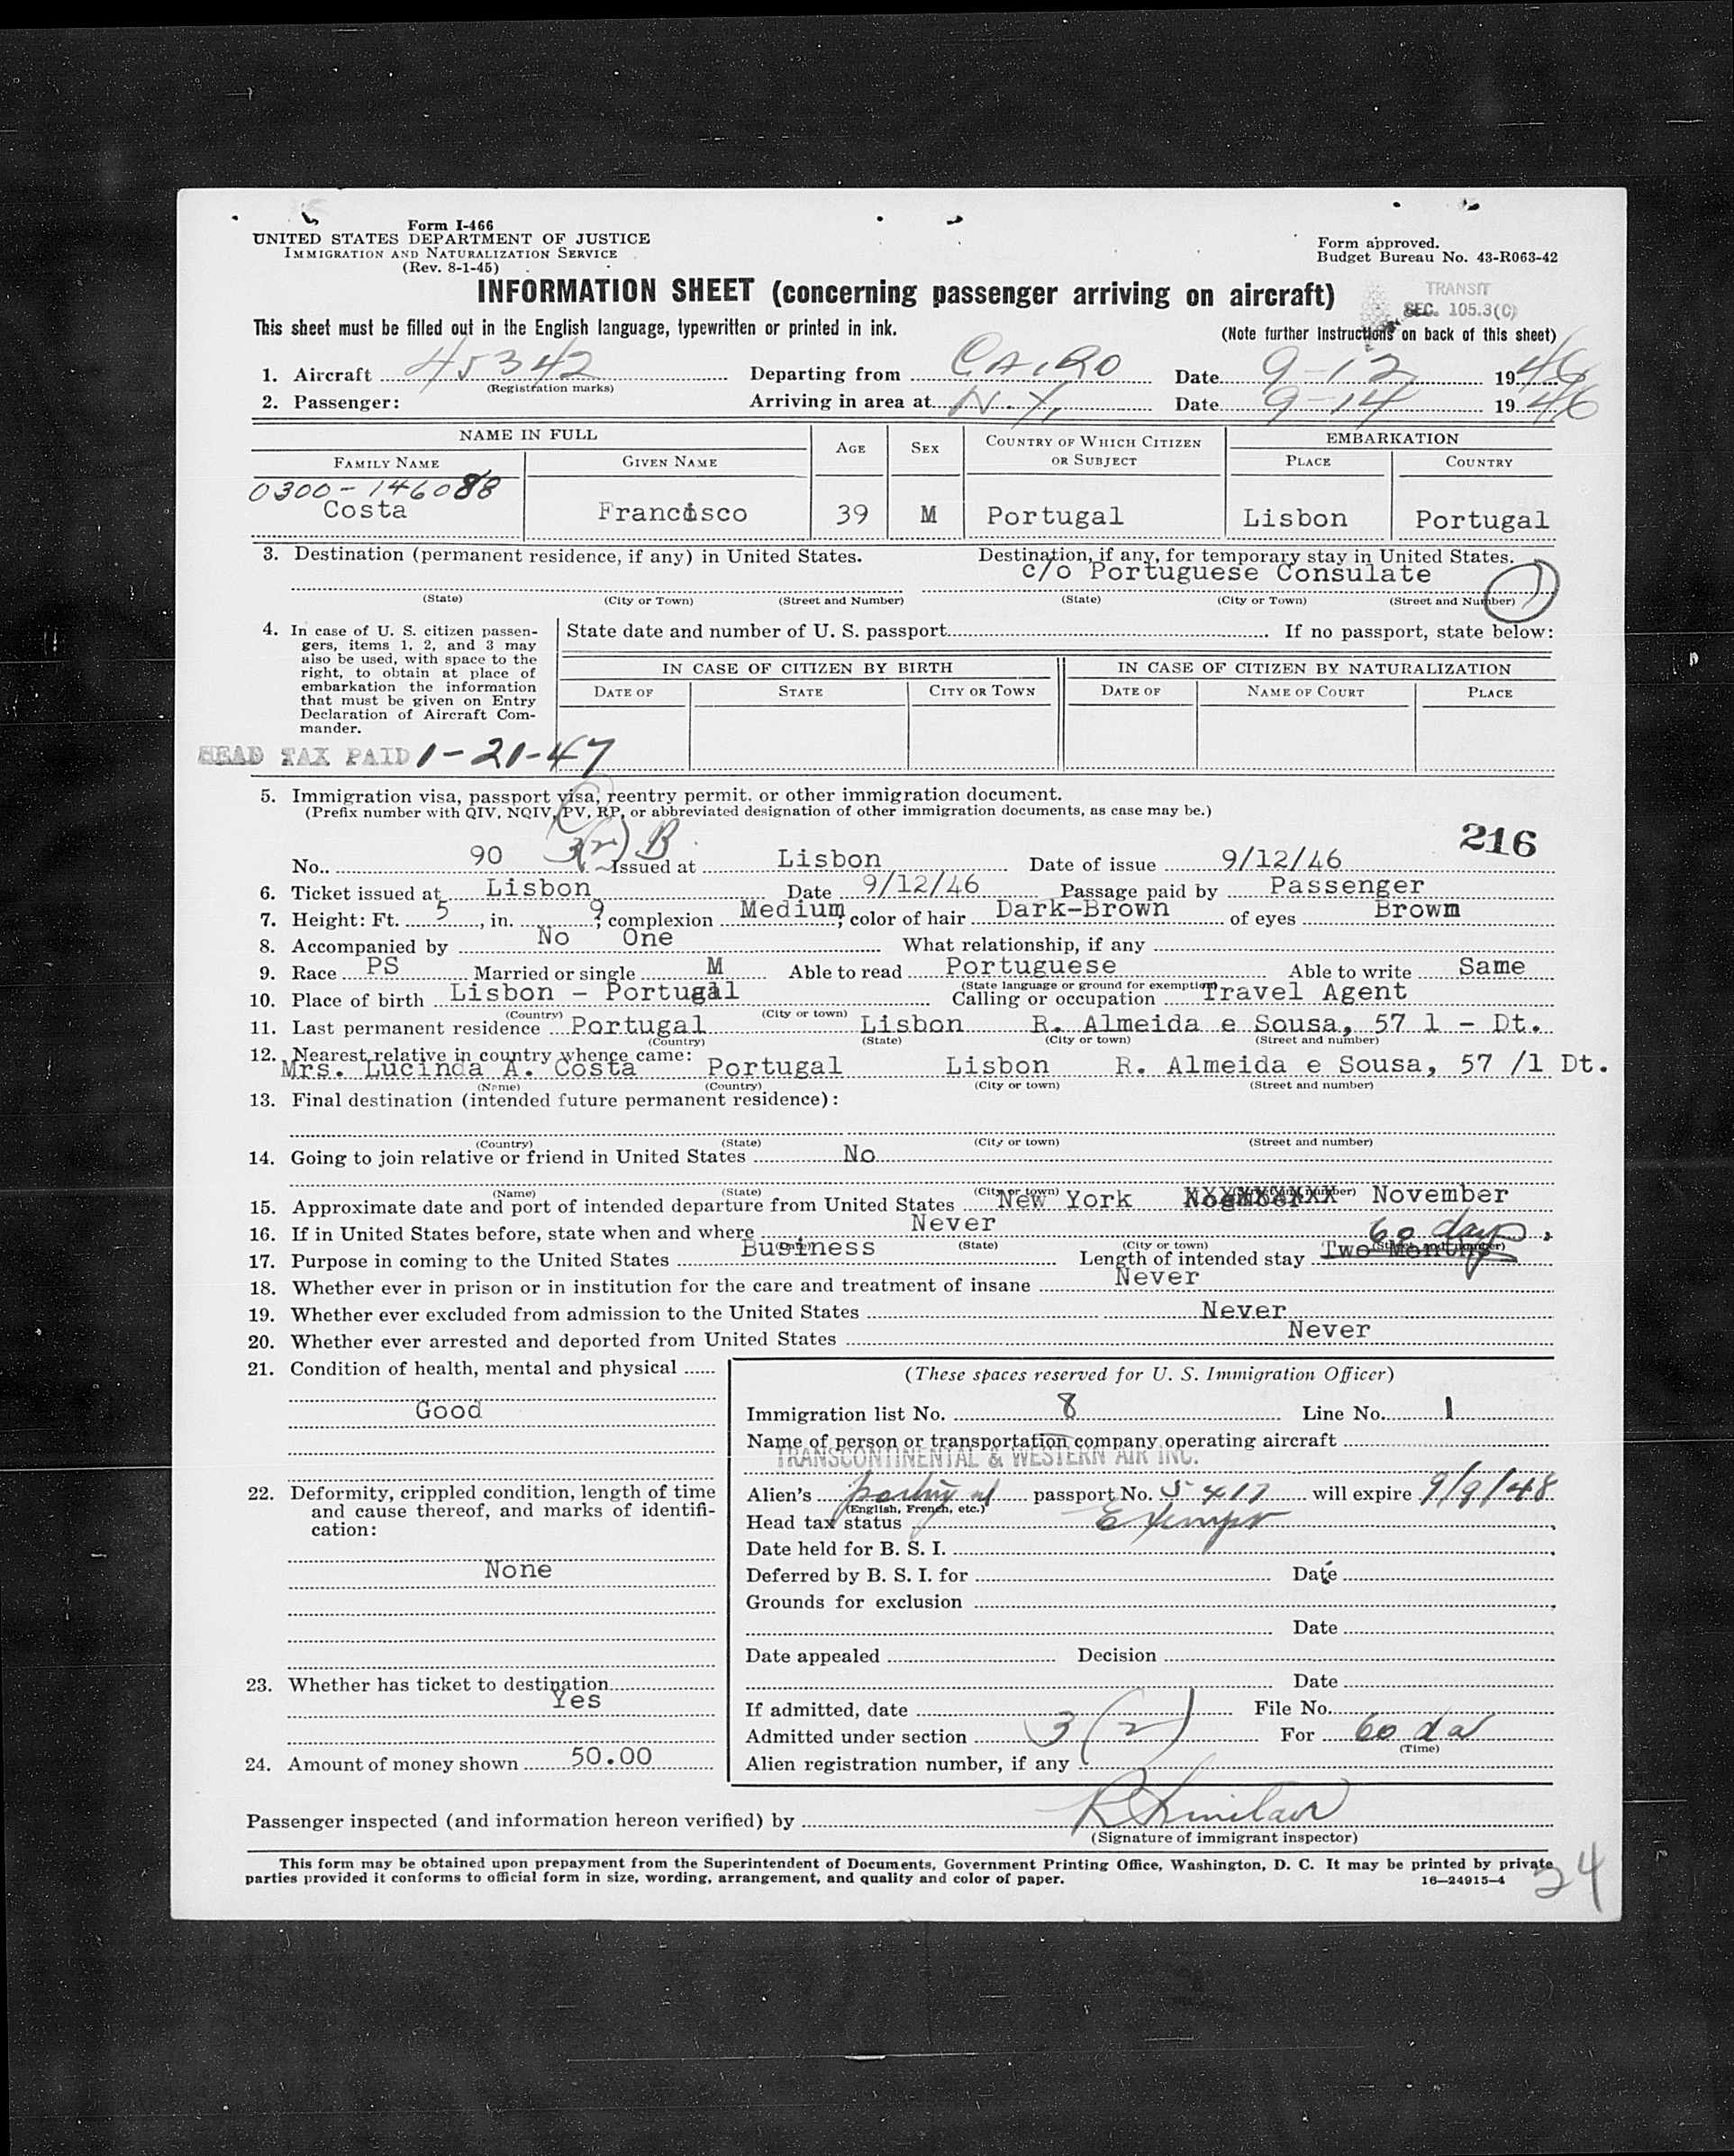 Form I-466
UNITED STATES DEPARTMENT OF JUSTICE
IMMIGRATION AND NATURALIZATION SERVICE
(Rev. 8-1-45)
Form approved.
Budget Bureau No. 43-R063-42
INFORMATION SHEET (concerning passenger arriving on aircraft)
TRANSIT
SEC. 105.3(C)
This sheet must be filled out in the English language, typewritten or printed in ink.
(Note further Instructions on back of this sheet)
1. Aircraft 45342 Departing from CAIRO Date 9-12 1946
(Registration marks)
2. Passenger: Arriving in area at N.Y. Date 9-14 1946
NAME IN FULL AGE SEX COUNTRY OF WHICH CITIZEN OR SUBJECT EMBARKATION
FAMILY NAME GIVEN NAME PLACE COUNTRY
0300-146088
Costa Francisco 39 M Portugal Lisbon Portugal
3. Destination (permanent residence, if any) in United States. Destination, if any, for temporary stay in United States.
c/o Portuguese Consulate
(State) (City or Town) (Street and Number) (State) (City or Town) (Street and Number)
4. In case of U. S. citizen passengers, items 1, 2, and 3 may also be used, with space to the right, to obtain at place of embarkation the information that must be given on Entry Declaration of Aircraft Commander.
State date and number of U. S. passport If no passport, state below:
IN CASE OF CITIZEN BY BIRTH IN CASE OF CITIZEN BY NATURALIZATION
DATE OF STATE CITY OR TOWN DATE OF NAME OF COURT PLACE
HEAD TAX PAID 1-21-47
5. Immigration visa, passport visa, reentry permit, or other immigration document.
(Prefix number with QIV, NQIV, PV, RP, or abbreviated designation of other immigration documents, as case may be.)
216
3(2) B
No. 90 Issued at Lisbon Date of issue 9/12/46
6. Ticket issued at Lisbon Date 9/12/46 Passage paid by Passenger
7. Height: Ft. 5, in. 9; complexion Medium; color of hair Dark-Brown of eyes Brown
8. Accompanied by No One What relationship, if any
9. Race PS Married or single M Able to read Portuguese Able to write Same
(State language or ground for exemption)
10. Place of birth Lisbon - Portugal Calling or occupation Travel Agent
(Country) (City or town)
11. Last permanent residence Portugal Lisbon R. Almeida e Sousa, 57 1 - Dt.
(Country) (State) (City or town) (Street and number)
12. Nearest relative in country whence came:
Mrs. Lucinda A. Costa Portugal Lisbon R. Almeida e Sousa, 57 /1 Dt.
(Name) (Country) (City or town) (Street and number)
13. Final destination (intended future permanent residence):
(Country) (State) (City or town) (Street and number)
14. Going to join relative or friend in United States No
(Name) (State) (City or town) (Street and number)
15. Approximate date and port of intended departure from United States New York November
16. If in United States before, state when and where Never
60 days
(State) (City or town) (Street and number)
17. Purpose in coming to the United States Business Length of intended stay Two Months
18. Whether ever in prison or in institution for the care and treatment of insane Never
19. Whether ever excluded from admission to the United States Never
20. Whether ever arrested and deported from United States Never
21. Condition of health, mental and physical
Good
22. Deformity, crippled condition, length of time and cause thereof, and marks of identification:
None
23. Whether has ticket to destination
Yes
24. Amount of money shown 50.00
(These spaces reserved for U. S. Immigration Officer)
Immigration list No. 8 Line No. 1
Name of person or transportation company operating aircraft
TRANSCONTINENTAL & WESTERN AIR INC.
Alien's passport No. 5417 will expire 9/9/48
(English, French, etc.)
Head tax status Exempt
Date held for B. S. I.
Deferred by B. S. I. for Date
Grounds for exclusion
Date
Date appealed Decision
Date
If admitted, date File No.
Admitted under section 3(2) For 60 da
(Time)
Alien registration number, if any
Passenger inspected (and information hereon verified) by
(Signature of immigrant inspector)
This form may be obtained upon prepayment from the Superintendent of Documents, Government Printing Office, Washington, D. C. It may be printed by private
parties provided it conforms to official form in size, wording, arrangement, and quality and color of paper. 16—24915-4
24